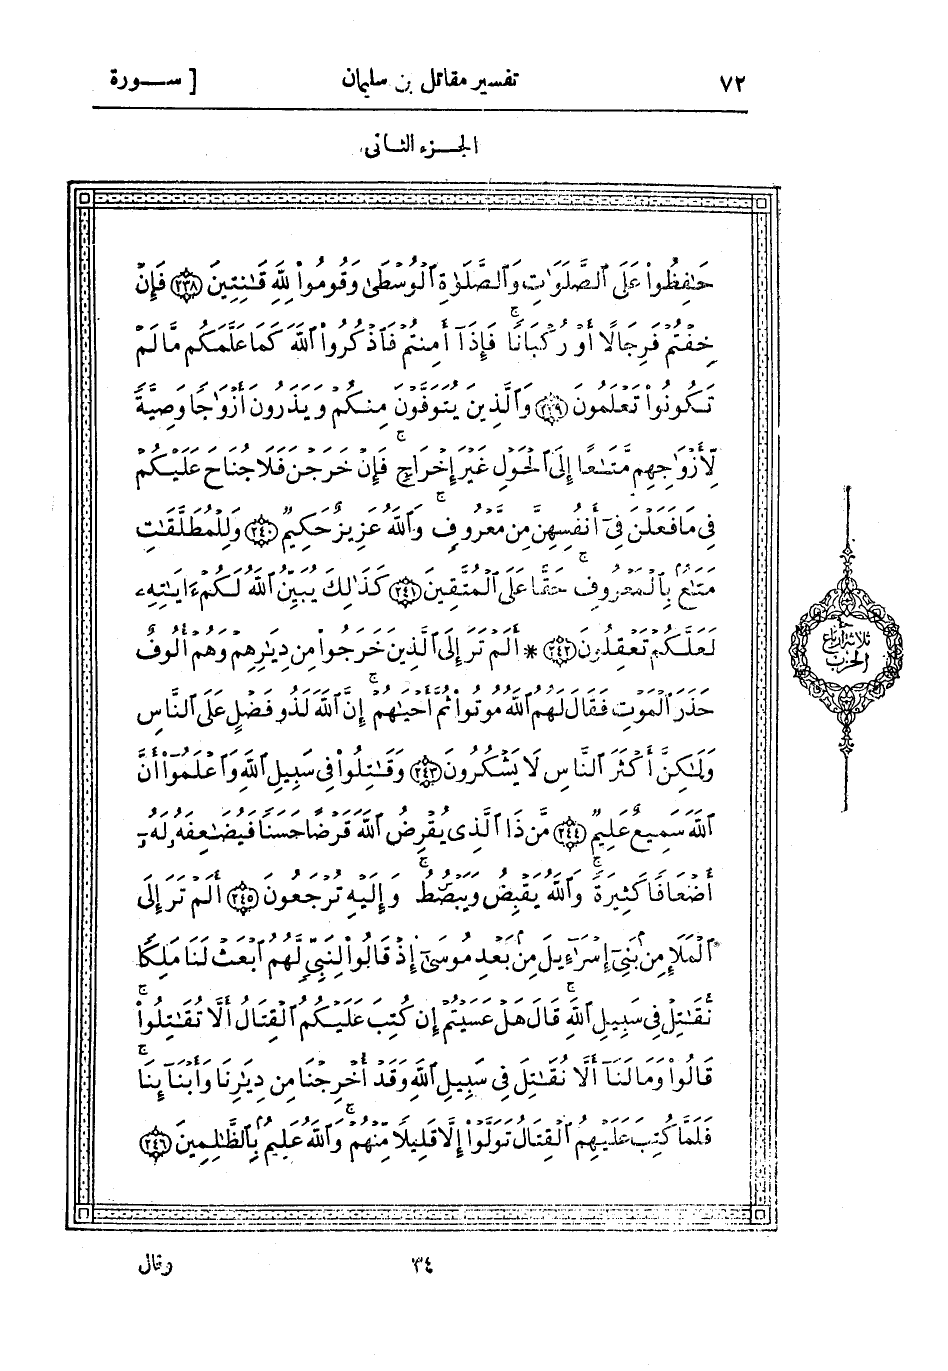 ٧٢ تفسير مقاتل بن سليمان [ ســورة
الجـزء الثانى
حَٰفِظُوا۟ عَلَى ٱلصَّلَوَٰتِ وَٱلصَّلَوٰةِ ٱلْوُسْطَىٰ وَقُومُوا۟ لِلَّهِ قَٰنِتِينَ ﴿٢٣٨﴾ فَإِنْ
خِفْتُمْ فَرِجَالًا أَوْ رُكْبَانًا ۖ فَإِذَآ أَمِنتُمْ فَٱذْكُرُوا۟ ٱللَّهَ كَمَا عَلَّمَكُم مَّا لَمْ
تَكُونُوا۟ تَعْلَمُونَ ﴿٢٣٩﴾ وَٱلَّذِينَ يُتَوَفَّوْنَ مِنكُمْ وَيَذَرُونَ أَزْوَٰجًا وَصِيَّةً
لِّأَزْوَٰجِهِم مَّتَٰعًا إِلَى ٱلْحَوْلِ غَيْرَ إِخْرَاجٍ ۚ فَإِنْ خَرَجْنَ فَلَا جُنَاحَ عَلَيْكُمْ
فِى مَا فَعَلْنَ فِىٓ أَنفُسِهِنَّ مِن مَّعْرُوفٍ ۗ وَٱللَّهُ عَزِيزٌ حَكِيمٌ ﴿٢٤٠﴾ وَلِلْمُطَلَّقَٰتِ
مَتَٰعٌۢ بِٱلْمَعْرُوفِ ۖ حَقًّا عَلَى ٱلْمُتَّقِينَ ﴿٢٤١﴾ كَذَٰلِكَ يُبَيِّنُ ٱللَّهُ لَكُمْ ءَايَٰتِهِۦ
لَعَلَّكُمْ تَعْقِلُونَ ﴿٢٤٢﴾ * أَلَمْ تَرَ إِلَى ٱلَّذِينَ خَرَجُوا۟ مِن دِيَٰرِهِمْ وَهُمْ أُلُوفٌ
حَذَرَ ٱلْمَوْتِ فَقَالَ لَهُمُ ٱللَّهُ مُوتُوا۟ ثُمَّ أَحْيَٰهُمْ ۚ إِنَّ ٱللَّهَ لَذُو فَضْلٍ عَلَى ٱلنَّاسِ
وَلَٰكِنَّ أَكْثَرَ ٱلنَّاسِ لَا يَشْكُرُونَ ﴿٢٤٣﴾ وَقَٰتِلُوا۟ فِى سَبِيلِ ٱللَّهِ وَٱعْلَمُوٓا۟ أَنَّ
ٱللَّهَ سَمِيعٌ عَلِيمٌ ﴿٢٤٤﴾ مَّن ذَا ٱلَّذِى يُقْرِضُ ٱللَّهَ قَرْضًا حَسَنًا فَيُضَٰعِفَهُۥ لَهُۥٓ
أَضْعَافًا كَثِيرَةً ۚ وَٱللَّهُ يَقْبِضُ وَيَبْصُۜطُ ۚ وَإِلَيْهِ تُرْجَعُونَ ﴿٢٤٥﴾ أَلَمْ تَرَ إِلَى
ٱلْمَلَإِ مِنۢ بَنِىٓ إِسْرَٰٓءِيلَ مِنۢ بَعْدِ مُوسَىٰٓ إِذْ قَالُوا۟ لِنَبِىٍّ لَّهُمُ ٱبْعَثْ لَنَا مَلِكًا
نُّقَٰتِلْ فِى سَبِيلِ ٱللَّهِ ۖ قَالَ هَلْ عَسَيْتُمْ إِن كُتِبَ عَلَيْكُمُ ٱلْقِتَالُ أَلَّا تُقَٰتِلُوا۟ ۖ
قَالُوا۟ وَمَا لَنَآ أَلَّا نُقَٰتِلَ فِى سَبِيلِ ٱللَّهِ وَقَدْ أُخْرِجْنَا مِن دِيَٰرِنَا وَأَبْنَآئِنَا ۖ
فَلَمَّا كُتِبَ عَلَيْهِمُ ٱلْقِتَالُ تَوَلَّوْا۟ إِلَّا قَلِيلًا مِّنْهُمْ ۗ وَٱللَّهُ عَلِيمٌۢ بِٱلظَّٰلِمِينَ ﴿٢٤٦﴾
ثلاثة أرباع
الحزب
٣٤ وقال